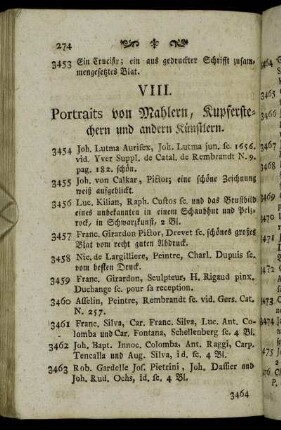 274
3453 Ein Crucifix; ein aus gedruckter Schrifft zusam-
mengesetztes Blat.
VIII.
Portraits von Mahlern, Kupferste-
chern und andern Künstlern.
3454 Joh. Lutma Aurifex, Joh. Lutma jun. sc. 1656.
vid. Yver Suppl. de Catal. de Rembrandt N. 9.
pag. 182. schön.
3455 Joh. von Calkar, Pictor; eine schöne Zeichnung
weiß aufgeblickt.
3456 Luc. Kilian, Raph. Custos sc. und das Brustbild
eines unbekannten in einem Schaubhut und Pelz-
rock, in Schwarzkunst. 2 Bl.
3457 Franc. Girardon Pictor, Drevet sc. schönes großes
Blat vom recht guten Abdruck.
3458 Nic. de Largilliere, Peintre, Charl. Dupuis sc.
vom besten Druck.
3459 Franc. Girardon, Sculpteur, H. Rigaud pinx.
Duchange sc. pour sa reception.
3460 Asselin, Peintre, Rembrandt sc. vid. Gers. Cat.
N. 257.
3461 Franc. Silva, Car. Franc. Silva, Luc. Ant. Co-
lomba und Car. Fontana, Schellenberg sc. 4 Bl.
3462 Joh. Bapt. Innoc. Colomba, Ant. Raggi, Carp.
Tencalla und Aug. Silva, id. sc. 4 Bl.
3463 Rob. Gardelle Jos. Petrini, Joh. Dassier und
Joh. Rud. Ochs, id. sc. 4 Bl.
3464